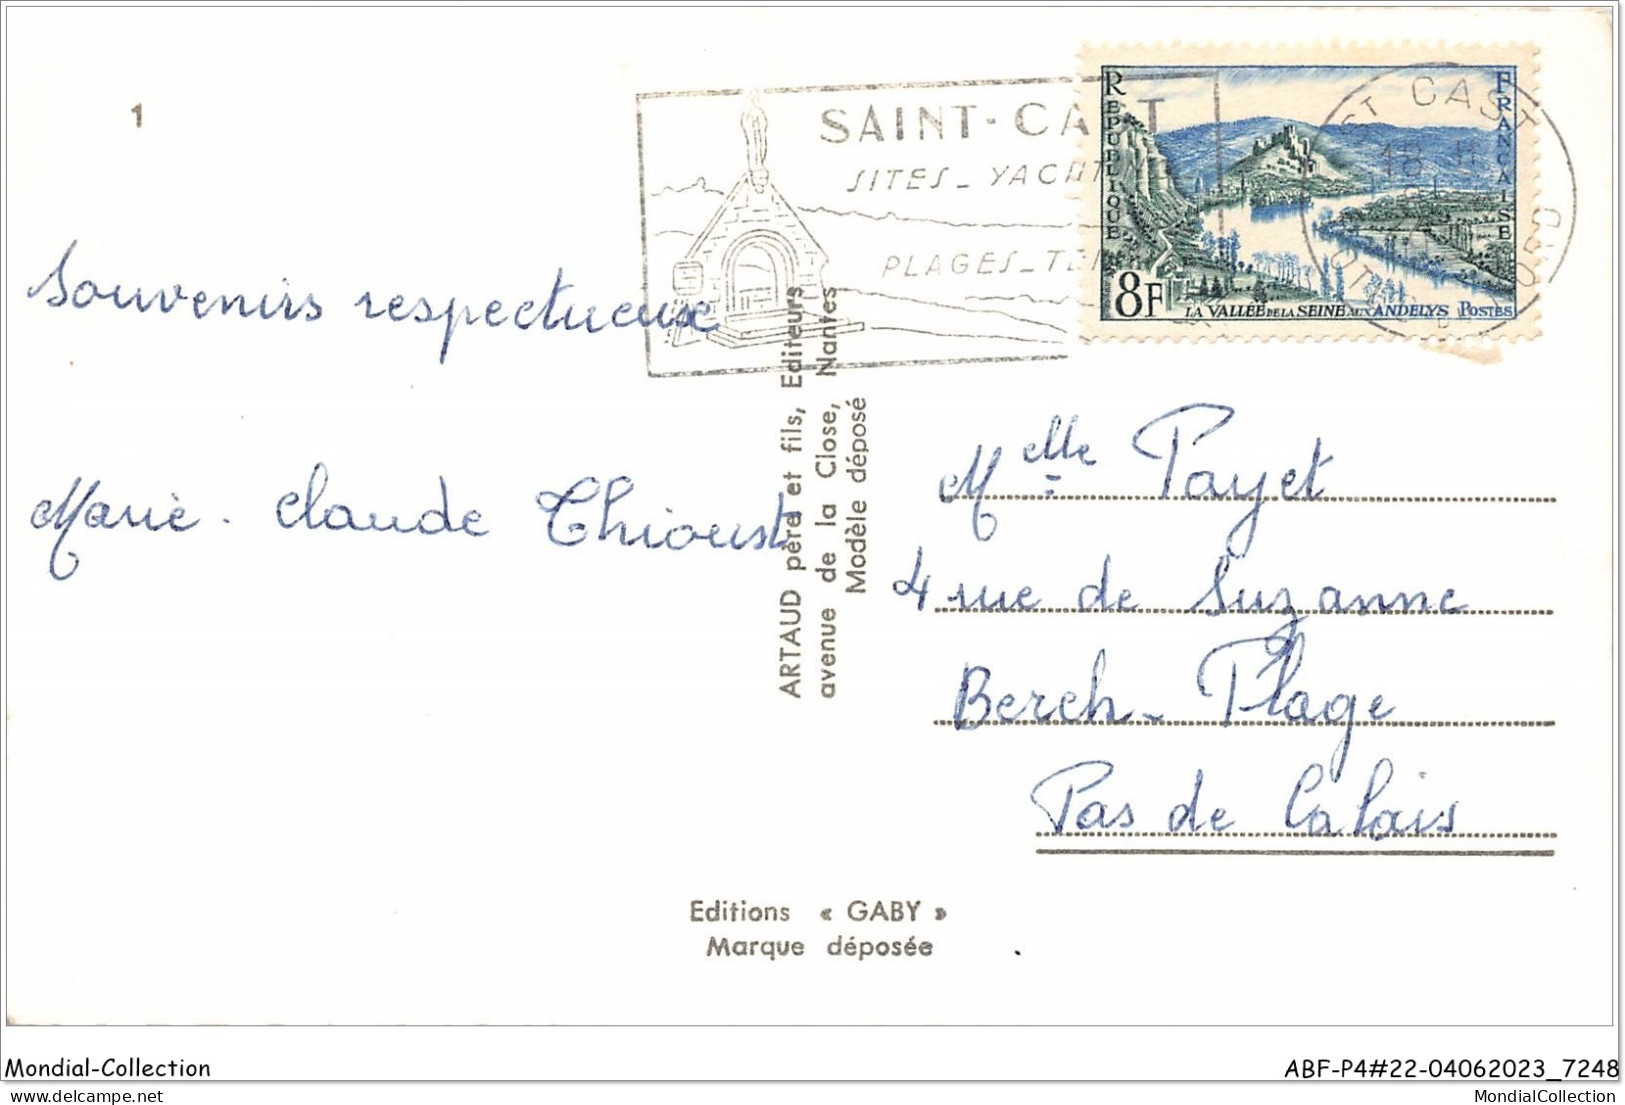 1
SAINT-CAST
SITES - YACHT
PLAGES - TE
ST CAST
18
COTES DU NORD
RÉPUBLIQUE
FRANÇAISE
8F
LA VALLÉE DE LA SEINE AUX ANDELYS POSTES
Souvenirs respectueux
Marie-Claude Thioust
ARTAUD père et fils, Editeurs
avenue de la Close, Nantes
Modèle déposé
Melle Payet
4 rue de Suzanne
Berck-Plage
Pas de Calais
Editions « GABY »
Marque déposée
Mondial-Collection
ABF-P4#22-04062023_7248
www.delcampe.net
MondialCollection